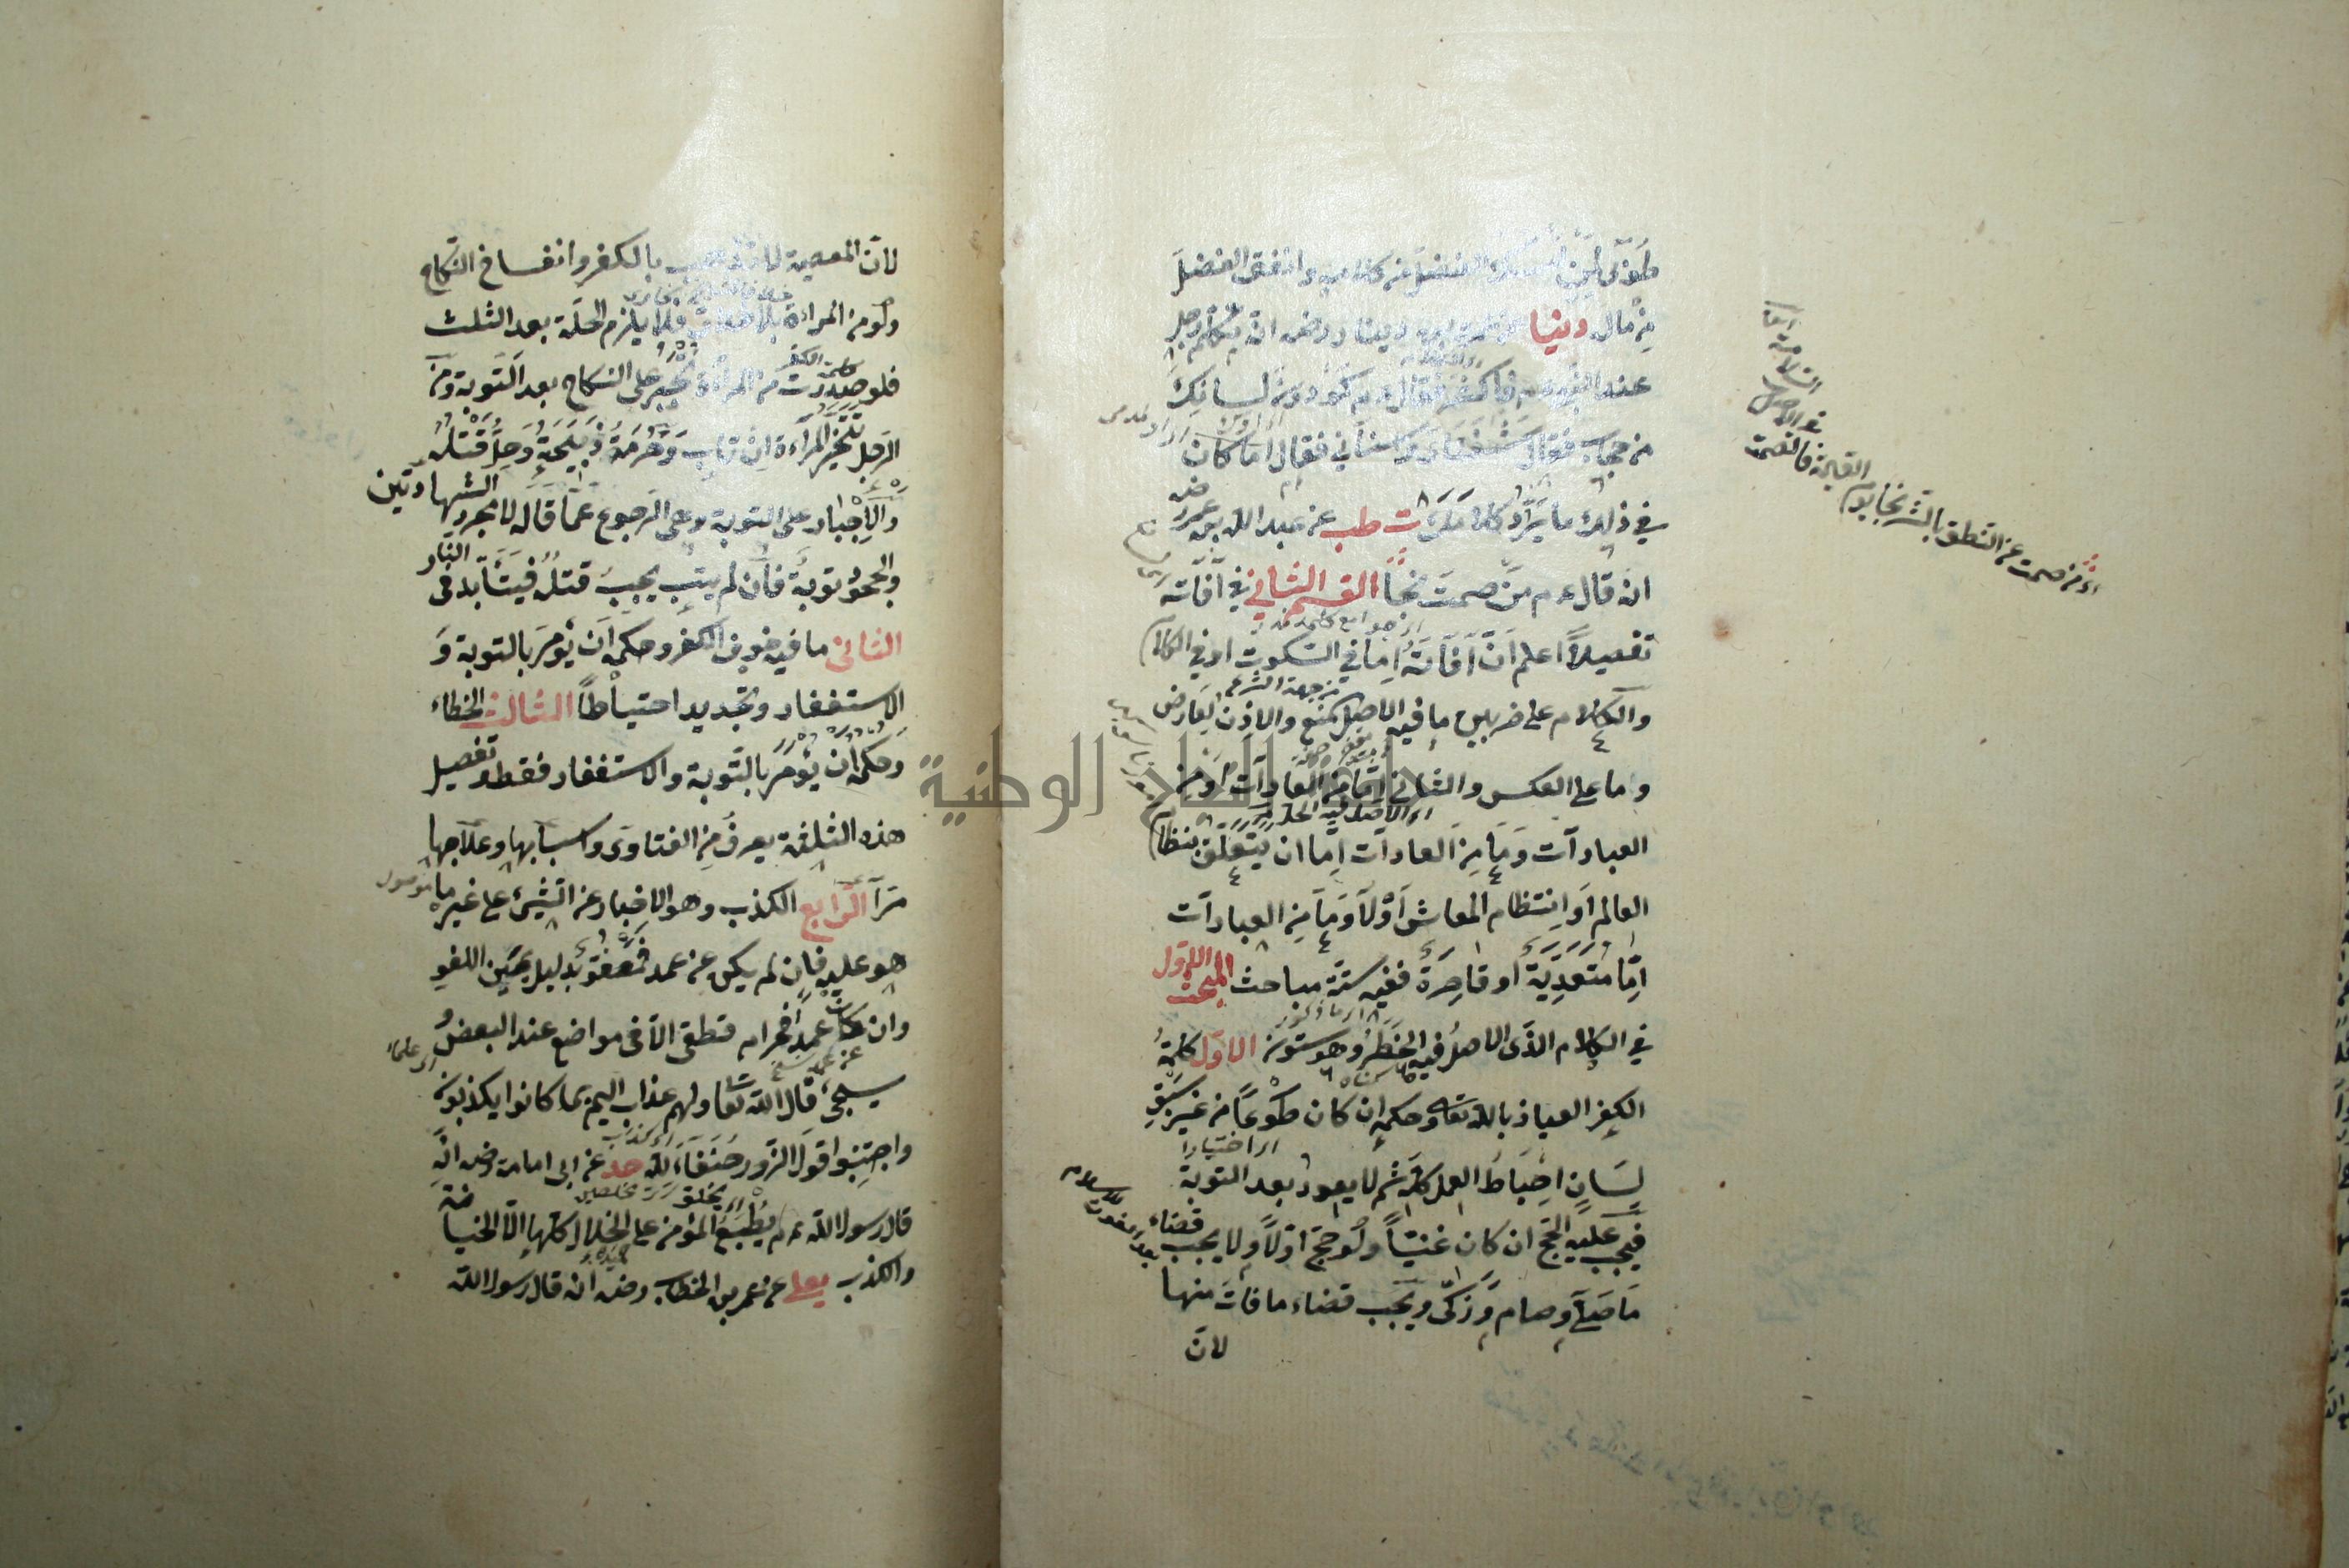 طُوبَى لمن أمسك الفضل من كلامه وأنفق الفضل
من ماله دنيا دينار رضى انه تكلم رجل
عند النبى عم فاكثر فقال عم كم دون لسانك
من حجاب فقال شفتاى واسنانى فقال اما كان
فى ذلك ما يرد كلامك ت طب عن عبد الله بن عمر رض
انه قال عم من صمت نجا القسم الثانى فى آفاته
تفصيلاً اعلم انّ آفاته اما فى السكوت او فى الكلام
والكلام على ضربين ما فيه الاصل المنع والاذن لعارض
وما على العكس والثانى اما من العادات او من
العبادات وما من العادات اما ان يتعلق بنظام
العالم او انتظام المعاش اولا وما من العبادات
اما متعدية او قاصرة ففيه ستة مباحث المبحث الاول
فى الكلام الذى الاصل فيه الحظر وهو ستون الاول كلمة
الكفر العياذ بالله تعالى وحكمه ان كان طوعًا من غير سبق
لسان احباط العمل كله ثم لا يعود بعد التوبة
فيجب عليه الحج ان كان غنيًا ولو حج اولاً ولا يجب قضاء
ما صلى وصام وزكى ويجب قضاء ما فات منها
لان
اى من صمت عن النطق بالشر نجا يوم القيمة فالصمت
هو الاصل
لانّ المعصية لا تذهب بالكفر وانفساخ النكاح
ولو من المرأة بلا طلاق فلا يلزم الحلة بعد الثلث
فلو صدرت من المرأة تجبر على النكاح بعد التوبة ومن
كلمة الكفر
الرجل تتخير المرأة ان تاب وحرمة ذبيحته وحل قتله
والاجبار على التوبة وهى الرجوع عمّا قاله لا مجرد الشهادتين
والجحود توبة فان لم يتب يجب قتله فيتأبد فى النار
الثانى ما فيه خوف الكفر وحكمه ان يؤمر بالتوبة و
الاستغفار وتجديد احتياطًا الثالث الخطاء
وحكمه ان يؤمر بالتوبة والاستغفار فقط وتفصيل
هذه الثلثة يعرف من الفتاوى واسبابها وعلاجها
مرّ الرابع الكذب وهو الاخبار عن الشئ على غير ما
هو عليه فان لم يكن عن عمد فمعفو بدليل يمين اللغو
وان كان عمدًا فحرام قطعى الا فى مواضع عند البعض و
سيجئ قال الله تعا ولهم عذاب اليم بما كانوا يكذبون
واجتنبوا قول الزور حنفاء لله حد عن ابى امامة رض انّه
قال رسول الله عم يطبع المؤمن على الخلال كلها الا الخيانة
والكذب يعلى عن عمر بن الخطاب رض انه قال رسول الله
جامعة النجاح الوطنية